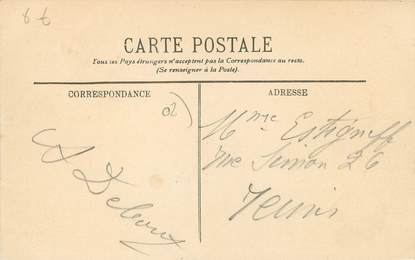 CARTE POSTALE
Tous les Pays étrangers n'acceptent pas la Correspondance au recto.
(Se renseigner à la Poste).
CORRESPONDANCE
ADRESSE
Mme
rue Simon 26
Reims